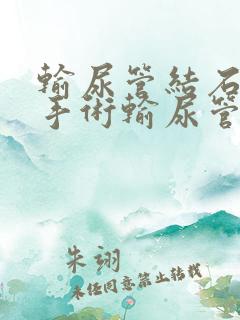 輸尿管結石
手術輸尿管
朱翊
未任同意禁止轉載